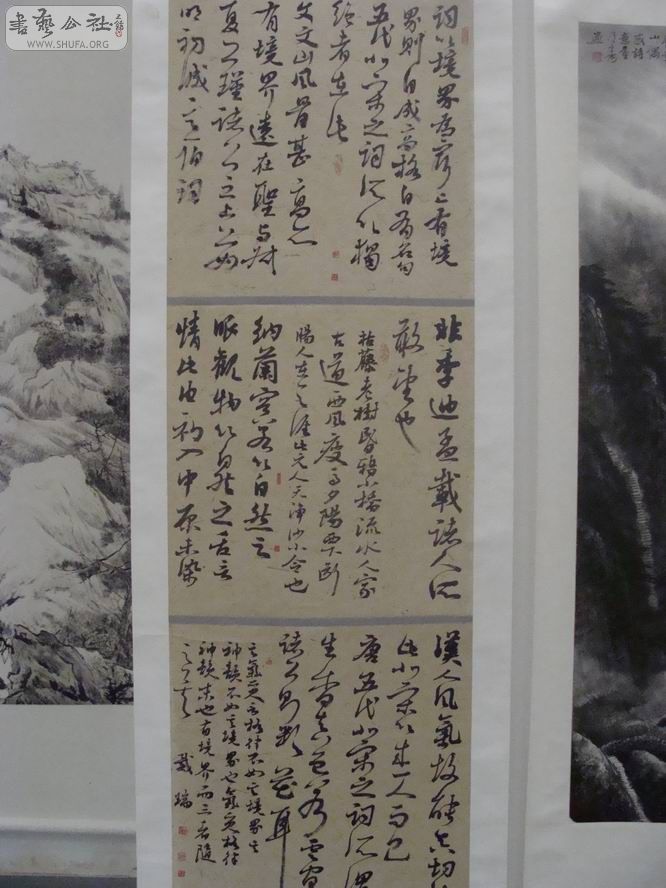 書藝公社
WWW.SHUFA.ORG
詞以境界為最上有境
界則自成高格自有名句
五代北宋之詞所以獨
絕者在此
文文山風骨甚高亦
有境界遠在聖與叔
夏公謹諸公之上亦如
明初誠意伯詞
非季迪孟載諸人所
敢望也
枯藤老樹昏鴉小橋流水人家
古道西風瘦馬夕陽西下斷
腸人在天涯此元人天淨沙小令也
納蘭容若以自然之
眼觀物以自然之舌言
情此由初入中原未染
漢人風氣故能真切
此北宋以來一人而已
唐五代北宋之詞所謂
生香真色若雲間
諸公則彩花耳
言氣質言格律不如言境界言
神韻不如言境界也氣質格律
神韻末也有境界而三者隨
之矣 戴瑞